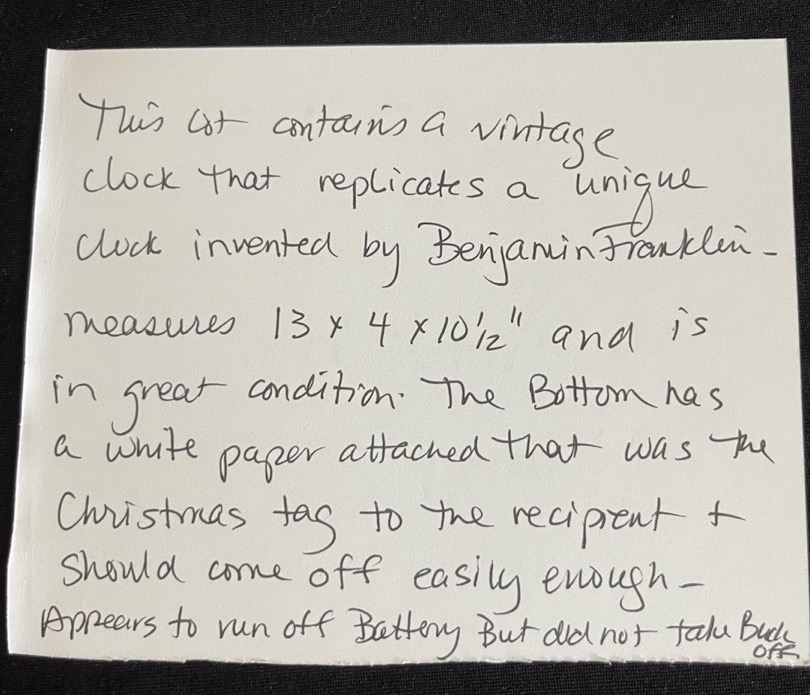 This lot contains a vintage
clock that replicates a unique
clock invented by Benjamin Franklin -
measures 13 x 4 x 10 1/2" and is
in great condition. The Bottom has
a white paper attached that was the
Christmas tag to the recipient +
should come off easily enough -
Appears to run off Battery But did not take Back
off.